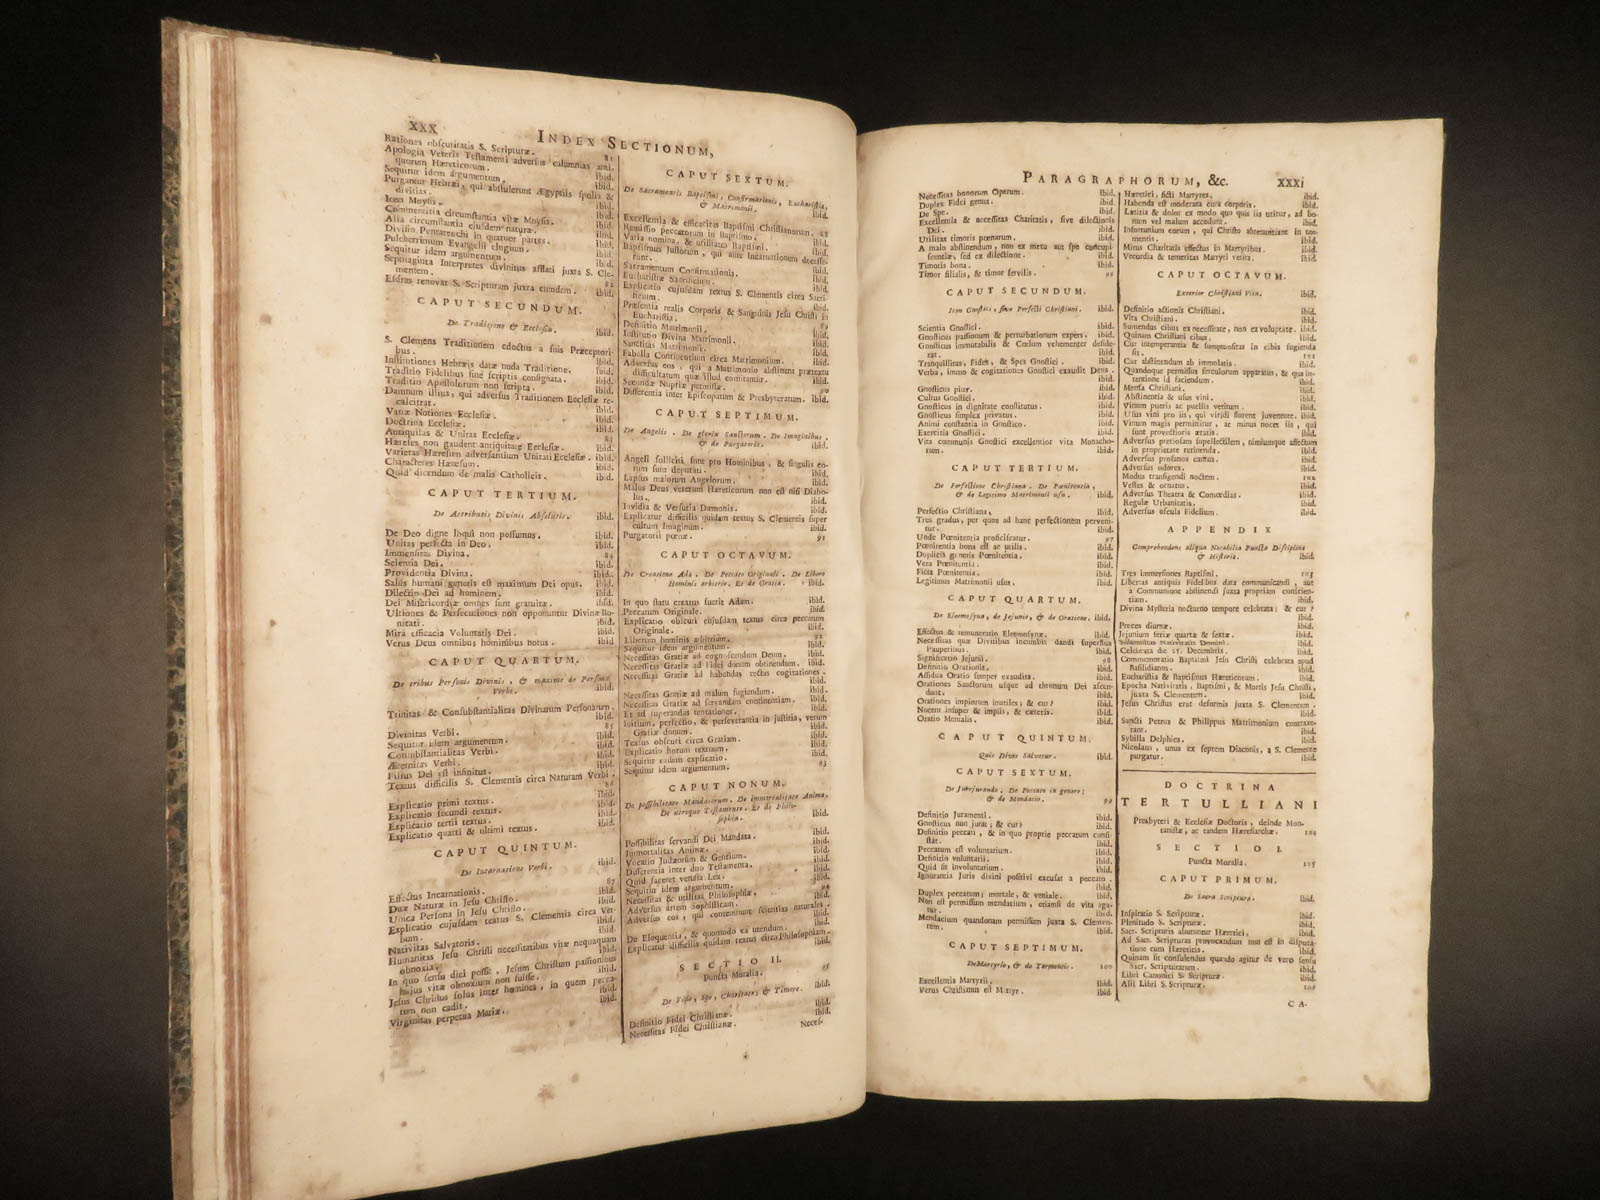 XXX
INDEX SECTIONUM,
Rationes obscuritatis S. Scripturæ. 81
Apologia Veteris Testamenti adversus calumnias ali-
quorum Hæreticorum. ibid.
Sequitur idem argumentum. ibid.
Purgantur Hebræi, qui abstulerunt Ægyptiis spolia &
divitias. ibid.
Icon Moysis. ibid.
Commentitia circumstantia vitæ Moysis. ibid.
Alia circumstantia ejusdem naturæ. ibid.
Divisio Pentateuchi in quatuor partes. ibid.
Pulcherrimum Evangelii elogium. ibid.
Sequitur idem argumentum. ibid.
Septuaginta Interpretes divinitus afflati juxta S. Cle-
mentem. 82
Esdras renovat S. Scripturam juxta eumdem. ibid.
CAPUT SECUNDUM.
De Traditione & Ecclesia. ibid.
S. Clemens Traditionem edoctus a suis Præceptori-
bus. ibid.
Institutiones Hebræis datæ nuda Traditione. ibid.
Traditio Fidelibus sine scriptis consignata. ibid.
Traditio Apostolorum non scripta. ibid.
Damnum illius, qui adversus Traditionem Ecclesiæ re-
calcitrat. ibid.
Variæ Notiones Ecclesiæ. ibid.
Doctrina Ecclesiæ. ibid.
Antiquitas & Unitas Ecclesiæ. 83
Hæreses non gaudent antiquitate Ecclesiæ. ibid.
Varietas Hæresum adversantium Unitati Ecclesiæ. ibid.
Characteres Hæresum. ibid.
Quid dicendum de malis Catholicis. ibid.
CAPUT TERTIUM.
De Attributis Divinis Absolutis. ibid.
De Deo digne loqui non possumus. ibid.
Unitas perfecta in Deo. ibid.
Immensitas Divina. 84
Scientia Dei. ibid.
Providentia Divina. ibid.
Salus humani generis est maximum Dei opus. ibid.
Dilectio Dei ad hominem. ibid.
Dei Misericordiæ omnes sunt gratuitæ. ibid.
Ultiones & Persecutiones non opponuntur Divinæ Bo-
nitati. ibid.
Mira efficacia Voluntatis Dei. ibid.
Verus Deus omnibus hominibus notus. ibid.
CAPUT QUARTUM.
De tribus Personis Divinis, & maxime de Persona
Verbi. ibid.
Trinitas & Consubstantialitas Divinarum Personarum.
ibid.
Divinitas Verbi. 85
Sequitur idem argumentum. ibid.
Consubstantialitas Verbi. ibid.
Æternitas Verbi. ibid.
Filius Dei est infinitus. ibid.
Textus difficilis S. Clementis circa Naturam Verbi.
86
Explicatio primi textus. ibid.
Explicatio secundi textus. ibid.
Explicatio tertii textus. ibid.
Explicatio quarti & ultimi textus. ibid.
CAPUT QUINTUM.
De Incarnatione Verbi. ibid.
Effectus Incarnationis. 87
Duæ Naturæ in Jesu Christo. ibid.
Unica Persona in Jesu Christo. ibid.
Explicatio cujusdam textus S. Clementis circa Ver-
bum. ibid.
Nativitas Salvatoris. ibid.
Humanitas Jesu Christi necessitatibus vitæ nequaquam
obnoxia. ibid.
In quo sensu dici posse, Jesum Christum passionibus
hujus vitæ obnoxium non fuisse. ibid.
Jesus Christus solus inter homines, in quem pecca-
tum non cadit. ibid.
Virginitas perpetua Mariæ. ibid.
CAPUT SEXTUM.
De Sacramentis Baptismi, Confirmationis, Eucharistiæ,
& Matrimonii. ibid.
Excellentia & efficacitas Baptismi Christianorum. 88
Remissio peccatorum in Baptismo. ibid.
Varia nomina, & utilitates Baptismi. ibid.
Baptismus Justorum, qui ante Incarnationem decesse-
runt. ibid.
Sacramentum Confirmationis. ibid.
Eucharistiæ Sacrificium. ibid.
Explicatio cujusdam textus S. Clementis circa Sacri-
ficium. ibid.
Præsentia realis Corporis & Sanguinis Jesu Christi in
Eucharistia. 89
Definitio Matrimonii. ibid.
Institutio Divina Matrimonii. ibid.
Sanctitas Matrimonii. ibid.
Fabella Continentium circa Matrimonium. ibid.
Adversus eos, qui a Matrimonio abstinent prætextu
difficultatum quæ illud comitantur. ibid.
Secundæ Nuptiæ permissæ. 90
Differentia inter Episcopatum & Presbyteratum. ibid.
CAPUT SEPTIMUM.
De Angelis. De gloria Sanctorum. De Imaginibus,
& de Purgatorio. ibid.
Angeli solliciti sunt pro Hominibus, & singulis eo-
rum sunt deputati. ibid.
Lapsus malorum Angelorum. ibid.
Malus Deus veterum Hæreticorum non est nisi Diabo-
lus. ibid.
Invidia & Versutia Dæmonis. ibid.
Explicatur difficilis quidam textus S. Clementis super
cultum Imaginum. ibid.
Purgatorii pœnæ. 91
CAPUT OCTAVUM.
De Creatione Adæ. De Peccato Originali. De Libero
Hominis arbitrio. Et de Gratia. ibid.
In quo statu creatus fuerit Adam. ibid.
Peccatum Originale. ibid.
Explicatio obscuri cujusdam textus circa peccatum
Originale. ibid.
Liberum hominis arbitrium. 92
Sequitur idem argumentum. ibid.
Necessitas Gratiæ ad cognoscendum Deum. ibid.
Necessitas Gratiæ ad Fidei donum obtinendum. ibid.
Necessitas Gratiæ ad habendas rectas cogitationes.
ibid.
Necessitas Gratiæ ad malum fugiendum. ibid.
Necessitas Gratiæ ad servandam continentiam. ibid.
Et ad superandas tentationes. ibid.
Initium, perfectio, & perseverantia in justitia, verum
Gratiæ donum. ibid.
Textus obscuri circa Gratiam. ibid.
Explicatio horum textuum. ibid.
Sequitur eadem explicatio. ibid.
Sequitur idem argumentum. 93
CAPUT NONUM.
De possibilitate Mandatorum. De immortalitate Animæ.
De utroque Testamento. Et de Philo-
sophia. ibid.
Possibilitas servandi Dei Mandata. ibid.
Immortalitas Animæ. ibid.
Vocatio Judæorum & Gentium. ibid.
Differentia inter duo Testamenta. ibid.
Quid faceret vetusta Lex. ibid.
Sequitur idem argumentum. ibid.
Necessitas & utilitas Philosophiæ. 94
Adversus artem Sophisticam. ibid.
Adversus eos, qui contemnunt scientias naturales.
ibid.
De Eloquentia, & quomodo ea utendum. ibid.
Explicatur difficilis quidam textus circa Philosophiam.
ibid.
SECTIO II.
Puncta Moralia. 95
De Fide, Spe, Charitate, & Timore. ibid.
Definitio Fidei Christianæ. ibid.
Necessitas Fidei Christianæ. ibid.
Neces-
PARAGRAPHORUM, &c. XXXI
Necessitas bonorum Operum. ibid.
Duplex Fidei genus. ibid.
De Spe. ibid.
Excellentia & necessitas Charitatis, sive dilectionis
Dei. ibid.
Utilitas timoris pœnarum. ibid.
A malo abstinendum, non ex metu aut spe concupi-
scentiæ, sed ex dilectione. ibid.
Timoris bona. ibid.
Timor filialis, & timor servilis. 96
CAPUT SECUNDUM.
Icon Gnostici, sive Perfecti Christiani. ibid.
Scientia Gnostici. ibid.
Gnosticus passionum & perturbationum expers. ibid.
Gnosticus immutabilis & Cœlum vehementer deside-
rat. ibid.
Tranquillitas, Fides, & Spes Gnostici. ibid.
Verba, immo & cogitationes Gnostici exaudit Deus.
ibid.
Gnosticus piur. ibid.
Cultus Gnostici. ibid.
Gnosticus in dignitate constitutus. ibid.
Gnosticus simplex privatus. ibid.
Animi constantia in Gnostico. ibid.
Exercitia Gnostici. ibid.
Vita communis Gnostici excellentior vita Monacho-
rum. ibid.
CAPUT TERTIUM.
De Perfectione Christiana. De Pœnitentia,
& de Legitimo Matrimonii usu. ibid.
Perfectio Christiana. ibid.
Tres gradus, per quos ad hanc perfectionem perveni-
tur. ibid.
Unde Pœnitentia proficiscatur. 97
Pœnitentia bona est ac utilis. ibid.
Duplicis generis Pœnitentia. ibid.
Vera Pœnitentia. ibid.
Ficta Pœnitentia. ibid.
Legitimus Matrimonii usus. ibid.
CAPUT QUARTUM.
De Eleemosyna, de Jejunio, & de Oratione. ibid.
Effectus & remuneratio Eleemosynæ. ibid.
Necessitas quæ Divitibus incumbit dandi superflua
Pauperibus. ibid.
Significatio Jejunii. 98
Definitio Orationis. ibid.
Assidua Oratio semper exaudita. ibid.
Orationes Sanctorum usque ad thronum Dei ascen-
dunt. ibid.
Orationes impiorum inutiles; & cur? ibid.
Nocent insuper & impiis, & cæteris. ibid.
Oratio Mentalis. ibid.
CAPUT QUINTUM.
Quis Dives Salvetur. ibid.
CAPUT SEXTUM.
De Jurejurando. De Peccato in genere;
& de Mendacio. 99
Definitio Juramenti. ibid.
Gnosticus non jurat; & cur? ibid.
Definitio peccati, & in quo proprie peccatum consi-
stat. ibid.
Peccatum est voluntarium. ibid.
Definitio voluntarii. ibid.
Quid sit involuntarium. ibid.
Ignorantia Juris divini positivi excusat a peccato.
ibid.
Duplex peccatum; mortale, & veniale. ibid.
Non est permissum mendacium, etiamsi de vita aga-
tur. ibid.
Mendacium quandonam permissum juxta S. Clemen-
tem. ibid.
CAPUT SEPTIMUM.
De Martyrio, & de Tormentis. 100
Excellentia Martyrii. ibid.
Verus Christianus est Martyr. ibid.
Hæretici, ficti Martyres. ibid.
Habenda est moderata cura corporis. ibid.
Lætitia & dolor ex modo quo quis iis utitur, ad bo-
num vel malum accedunt. ibid.
Infortunium eorum, qui Christo abrenuntiant in tor-
mentis. ibid.
Mirus Charitatis effectus in Martyribus. ibid.
Vecordia & temeritas Martyri vetita. ibid.
CAPUT OCTAVUM.
Exterior Christiani Vita. ibid.
Definitio actionis Christiani. ibid.
Vita Christiani. ibid.
Sumendus cibus ex necessitate, non ex voluptate. ibid.
Quinam Christiani cibus. ibid.
Cur intemperantia & sumptuositas in cibis fugienda
sit. 101
Cur abstinendum ab immolatis. ibid.
Quandoque permissus sumptuosior apparatus, & qua in-
tentione id faciendum. ibid.
Mensa Christiani. ibid.
Abstinentia & usus vini. ibid.
Vinum pueris ac puellis vetitum. ibid.
Usus vini pro iis, qui viridi florent juventute. ibid.
Vinum magis permittitur, ac minus nocet iis, qui
sunt provectioris ætatis. ibid.
Adversus pretiosam supellectilem, nimiumque affectum
in proprietate retinenda. ibid.
Adversus profanos cantus. ibid.
Adversus odores. ibid.
Modus transigendi noctem. 102
Vestes & ornatus. ibid.
Adversus Theatra & Comœdias. ibid.
Regulæ Urbanitatis. ibid.
Adversus oscula Fidelium. ibid.
APPENDIX
Comprehendens aliqua Notabilia Puncta Disciplinæ
& Historiæ. ibid.
Tres immersiones Baptismi. 103
Libertas antiquis Fidelibus data communicandi, aut
a Communione abstinendi juxta propriam conscien-
tiam. ibid.
Divina Mysteria nocturno tempore celebrata: & cur?
ibid.
Preces diurnæ. ibid.
Jejunium feriæ quartæ & sextæ. ibid.
Solemnitas Nativitatis Domini. ibid.
Celebrata die 25. Decembris. ibid.
Commemoratio Baptismi Jesu Christi celebrata apud
Basilidianos. ibid.
Eucharistia & Baptismus Hæreticorum. ibid.
Epocha Nativitatis, Baptismi, & Mortis Jesu Christi,
juxta S. Clementem. ibid.
Jesus Christus erat deformis juxta S. Clementem.
ibid.
Sancti Petrus & Philippus Matrimonium contraxe-
rant. ibid.
Sybilla Delphica. ibid.
Nicolaus, unus ex septem Diaconis, a S. Clemente
purgatur. ibid.
DOCTRINA
TERTULLIANI
Presbyteri & Ecclesiæ Doctoris, deinde Mon-
tanistæ, ac tandem Hæresiarchæ. 104
SECTIO I.
Puncta Moralia. 105
CAPUT PRIMUM.
De Sacra Scriptura. ibid.
Inspiratio S. Scripturæ. ibid.
Plenitudo S. Scripturæ. ibid.
Sacr. Scripturis abutuntur Hæretici. ibid.
Ad Sac. Scripturas provocandum non est in disputa-
tione cum Hæreticis. ibid.
Quinam sit consulendus quando agitur de vero sensu
Sac. Scripturarum. ibid.
Libri Canonici S. Scripturæ. ibid.
Alii Libri S. Scripturæ. 106
CA-